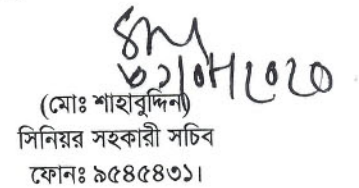 ৩১/০৮/২০২০
(মোঃ শাহাবুদ্দিন)
সিনিয়র সহকারী সচিব
ফোনঃ ৯৫৪৫৪৩১।